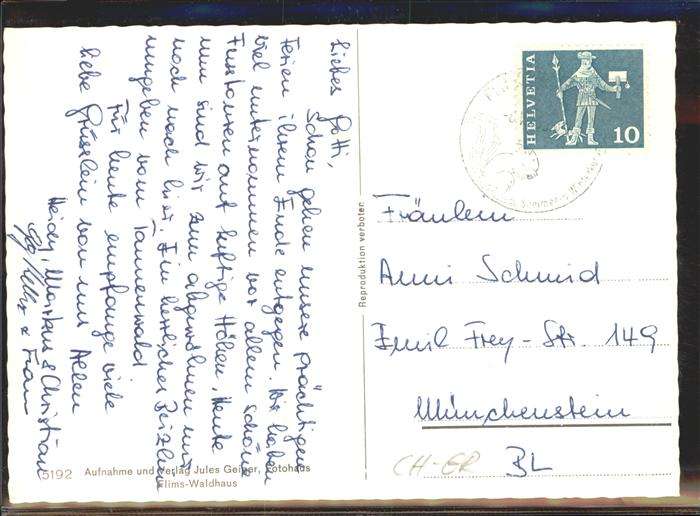 Liebes Gotti,
Schon gehen unsere prächtigen
Ferien ihrem Ende entgegen. Wir haben
viel unternommen vor allem schöne
Fusstouren auf luftige Höhen, Heute
nun sind wir zum abgewöhnen mit
noch nach hier. Ein herrliches
umgeben vom Tannenwald
Für heute empfange viele
liebe Grüsslein von uns Allen
Heidy, Markus & Christian
& Frau
HELVETIA
10
Fräulein
Anni Schmid
Emil Frey-Str. 149
Münchenstein
BL
CH-GR
Reproduktion verboten
5192 Aufnahme und Verlag Jules Geiger, Fotohaus
Flims-Waldhaus